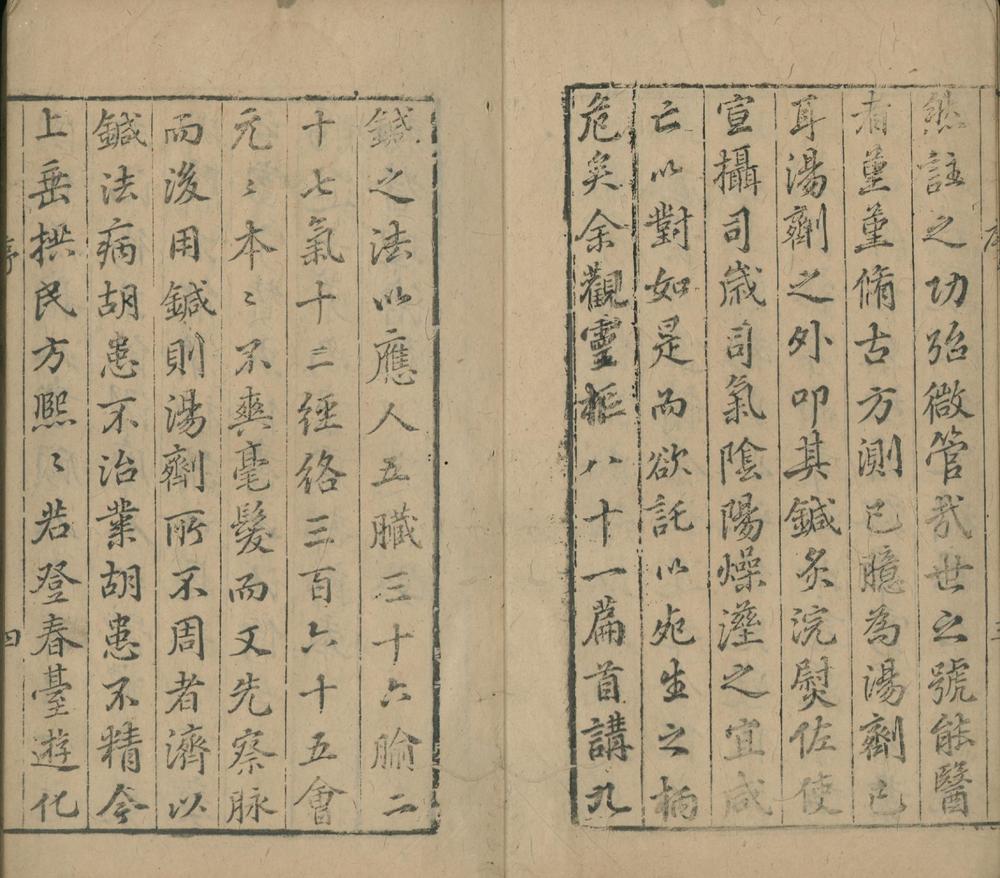 然註之功殆微管哉世之號能醫
者堇堇脩古方測已臆為湯劑已
耳湯劑之外叩其鍼炙浣熨佐使
宣攝司歲司氣陰陽燥溼之宜咸
亡以對如是而欲託以死生之柄
危矣余觀靈樞八十一篇首講九
鍼之法以應人五臟三十六腧二
十七氣十二經絡三百六十五會
元〻本〻不爽毫髮而又先察脉
而後用鍼則湯劑所不周者濟以
鍼法病胡患不治業胡患不精今
上垂拱民方熙〻若登春臺遊化
序
四